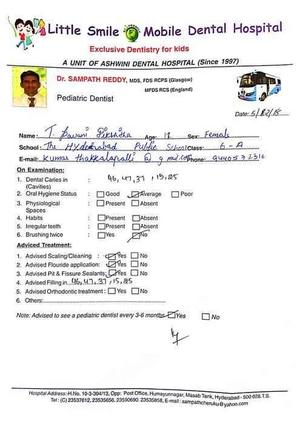 Little Smile Mobile Dental Hospital
Exclusive Dentistry for kids
A UNIT OF ASHWINI DENTAL HOSPITAL (Since 1997)
Dr. SAMPATH REDDY, MDS, FDS RCPS (Glasgow)
MFDS RCS (England)
Pediatric Dentist
Date: 5/12/15
Name: T. Age: Sex: Female
School: The Hyderabad Public School Class: 6-A
E-mail: kumar thakkalapalli @ gmail.com Phone:
On Examination:
1. Dental Caries in 46, 47, 37, 15, 25
(Cavities)
2. Oral Hygiene Status : Good Average Poor
3. Physiological : Present Absent
Spaces
4. Habits : Present Absent
5. Irregular teeth : Present Absent
6. Brushing twice : Yes No
Adviced Treatment:
1. Advised Scaling/Cleaning : Yes No
2. Advised Flouride application: Yes No
3. Advised Pit & Fissure Sealants: Yes No
4. Advised Filling in 46, 47, 37, 15, 25
5. Advised Orthodontic treatment : Yes No
6. Others:
Note: Advised to see a pediatric dentist every 3-6 months Yes No
Hospital Address: H.No. 10-3-304/13, Opp: Post Office, Humayunnagar, Masab Tank, Hyderabad - 500 028. T.S.
Tel: (C) 23537612, 23535656, 23590690 23535858, E-mail : sampathcheruku@yahoo.com